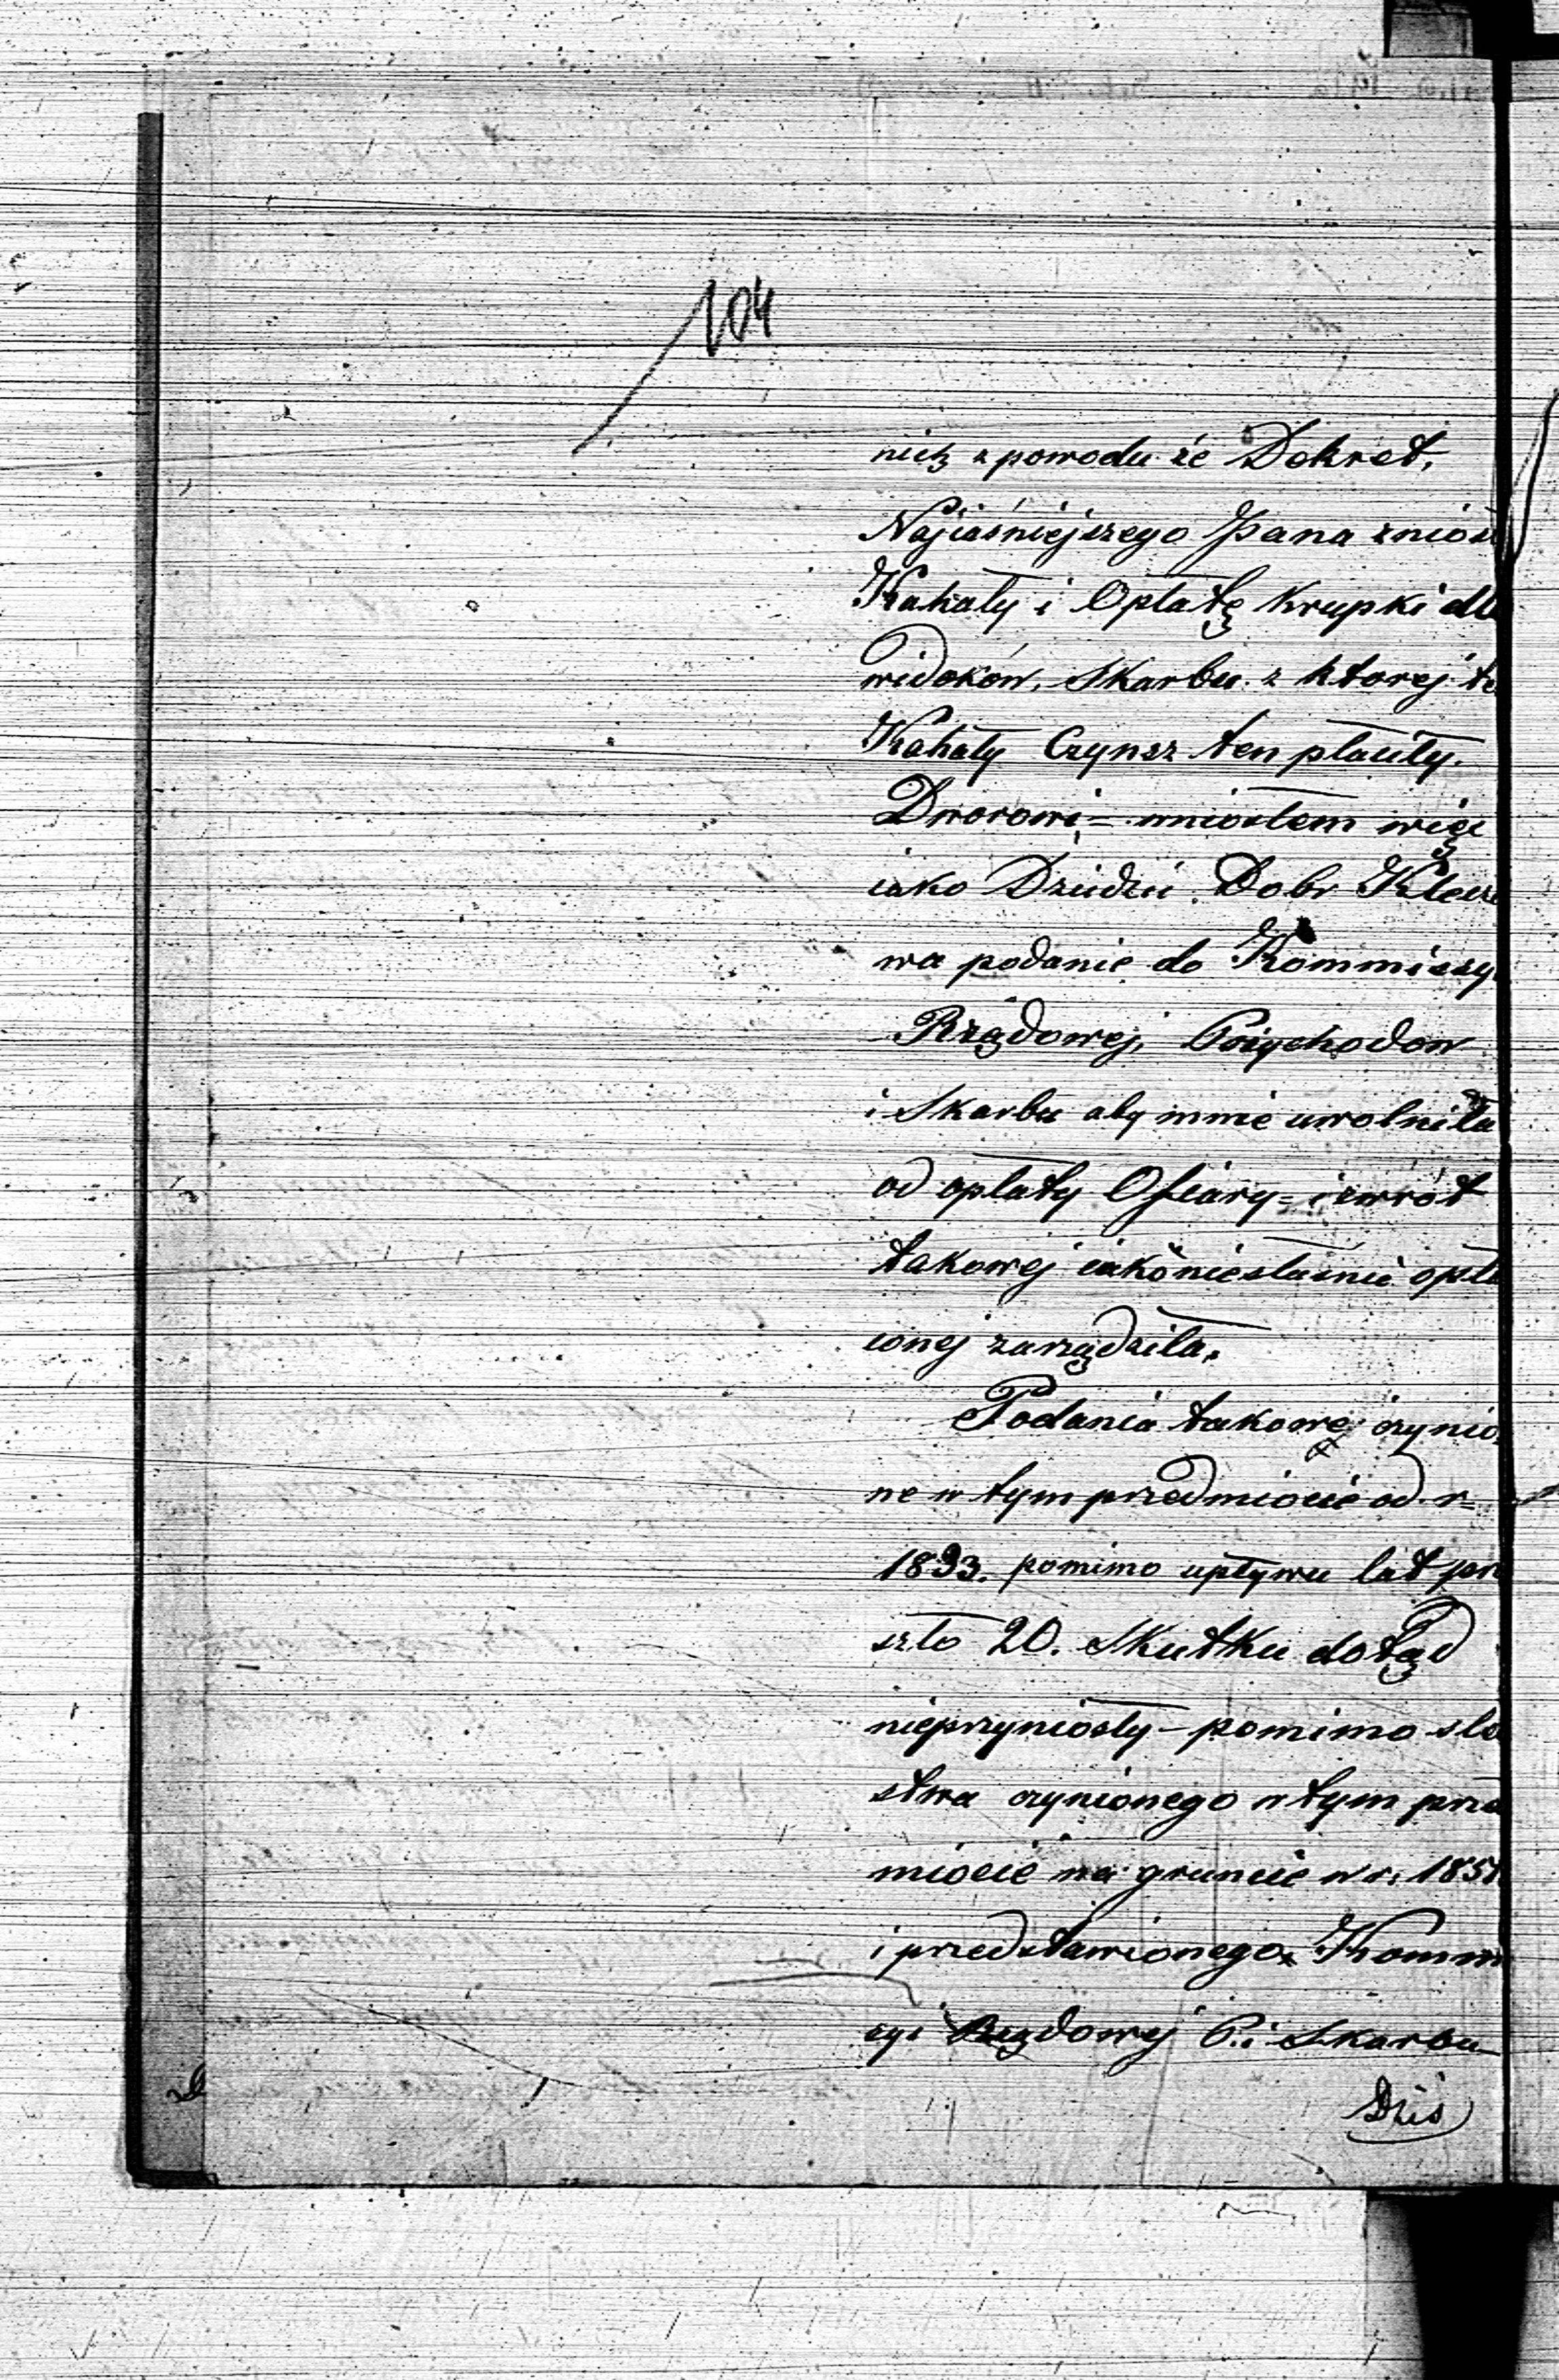 104
nich z powodu że Dekret,
Najiaśniejszego Pana zniósł
Kahały i Opłatę Krupki dla
widoków, Skarbu z ktorej te
Kahały Czynsz ten płaciły.
Dworowi = wniosłem więc
iako Dziedzic Dobr Klecze
wa podanie do Kommissyi
Rządowej, Przychodow
i Skarbu aby mnie uwolniła
od opłaty Ofiary = i zwrót
takowej iako niesłusznie opła
conej zarządziła,
Podania takowe czynio
ne w tym przedmiocie od r=
1833. pomimo upływu lat prze
szło 20. Skutku dotąd
nieprzyniosły – pomimo sle
stwa czynionego w tym przed
miocie na gruncie w r. 1851
i przedstawionego Kommi
cyi Rządowej P. i Skarbu
Dziś